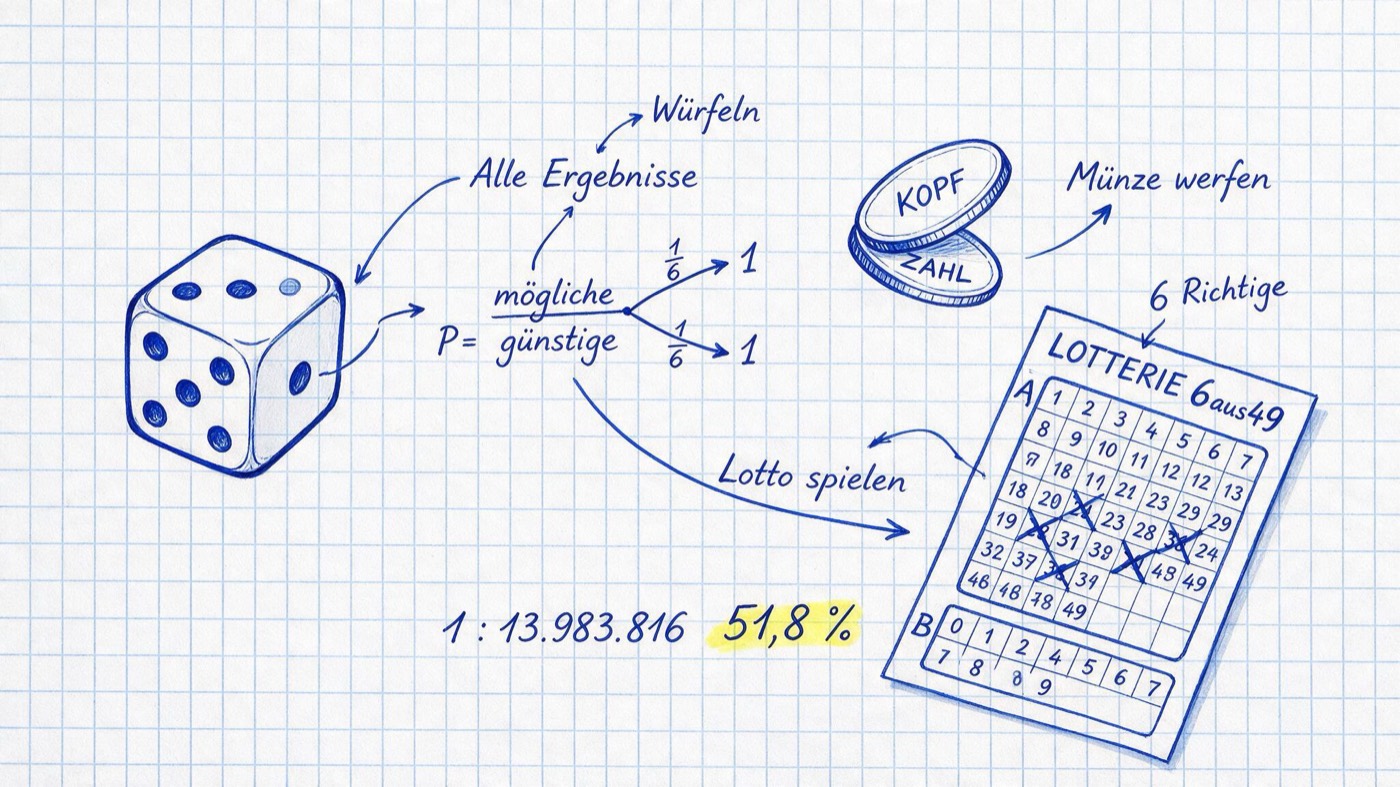 Würfeln
Alle Ergebnisse
KOPF
ZAHL
Münze werfen
P = mögliche
günstige
1/6 1
1/6 1
6 Richtige
LOTTERIE 6aus49
A
1 2 3 4 5 6 7
8 9 10 11 12 12 13
18 11 21 23 29 29
18 20 23 28 24
19 31 39 48 49
32 37 39
46 48 78 49
Lotto spielen
1 : 13.983.816 51,8 %
B
0 1 2 4 5 6 7
7 8 8 9